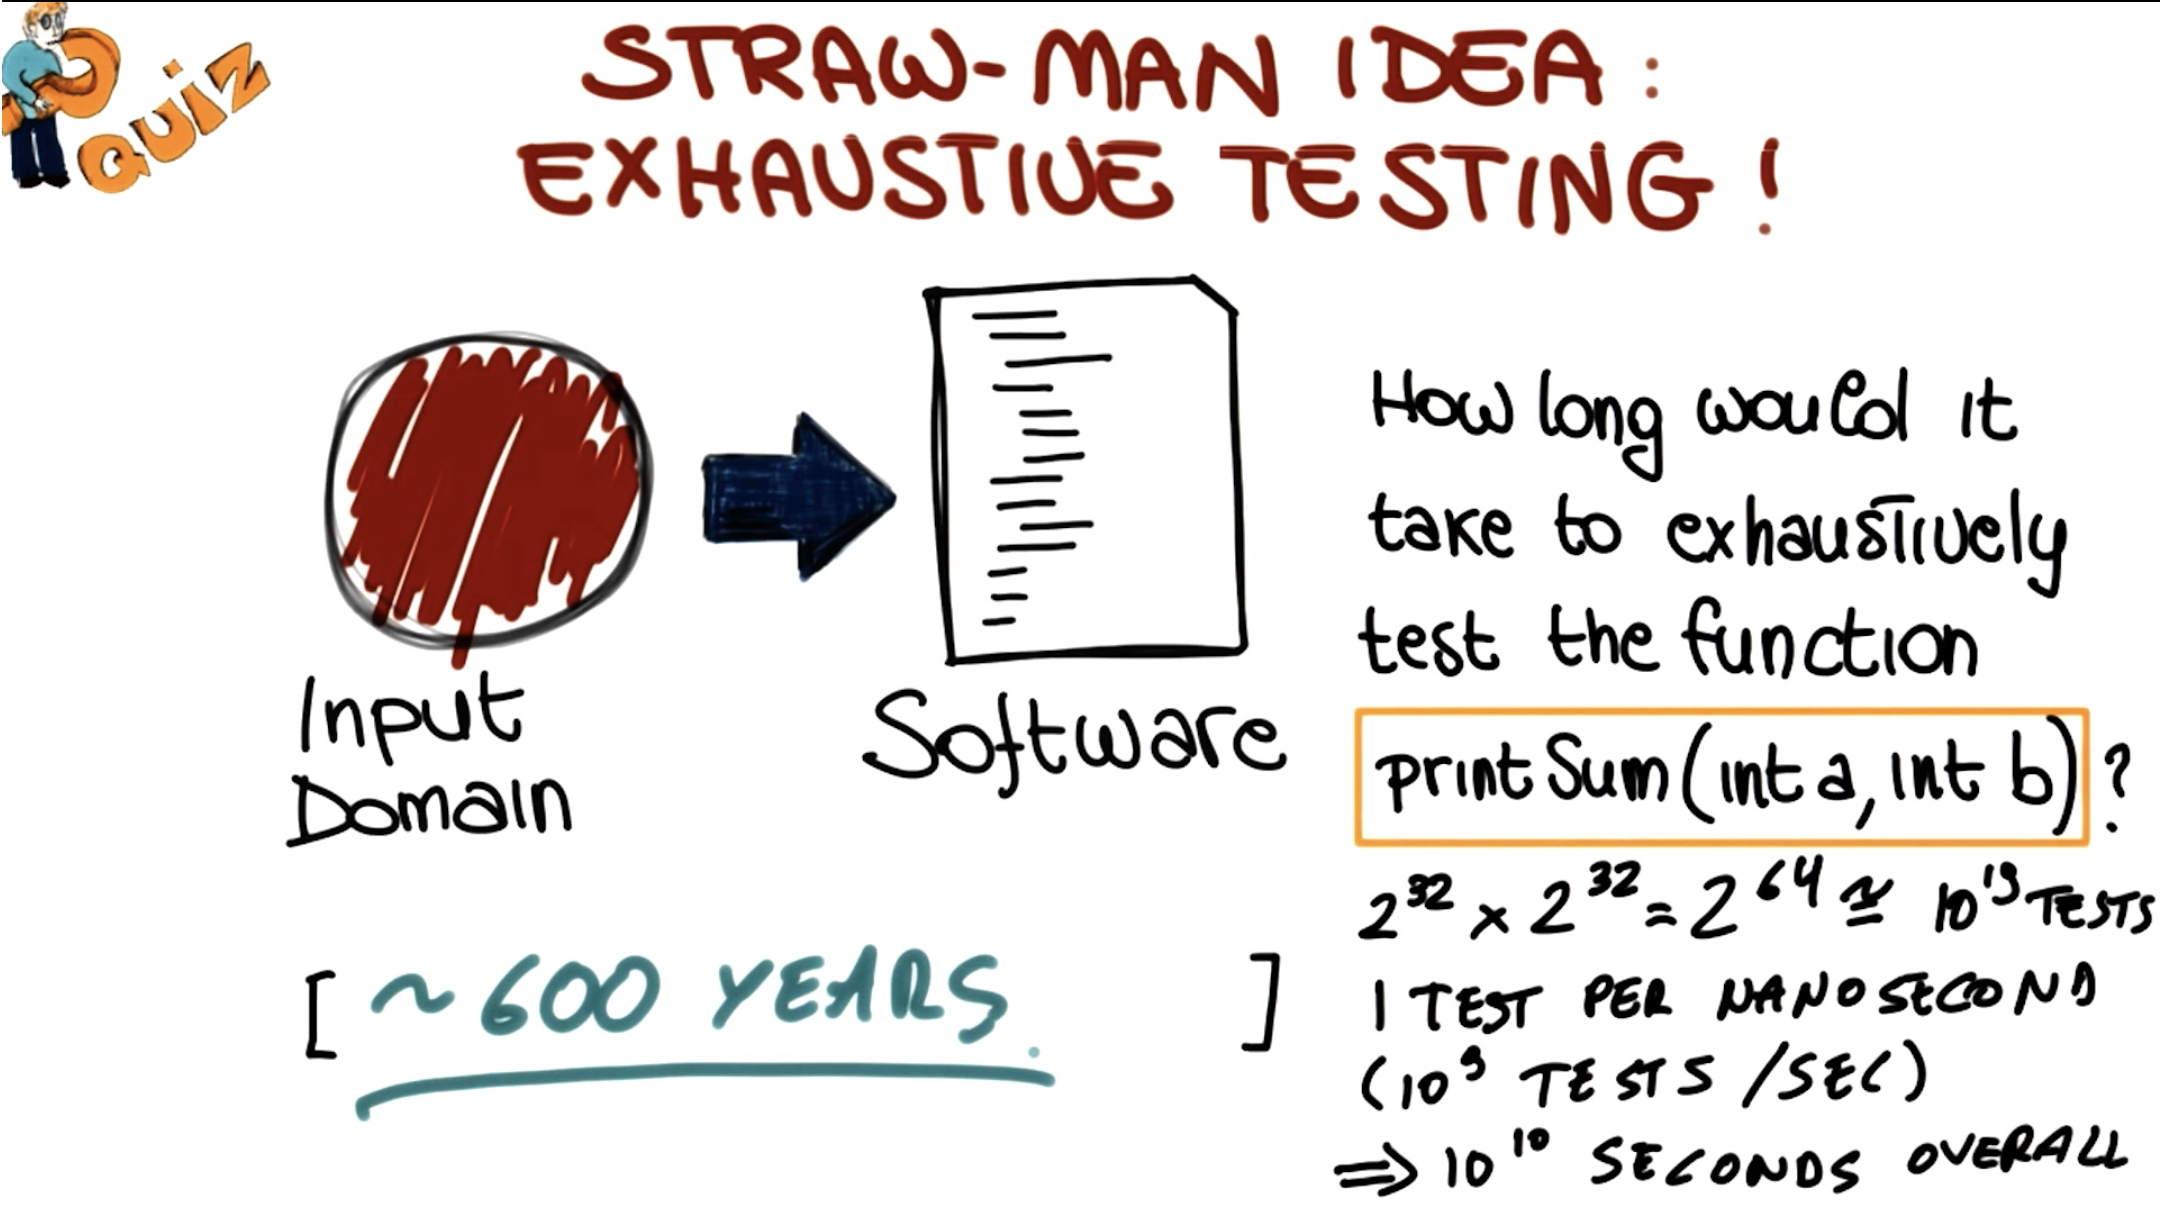 QUIZ
STRAW-MAN IDEA:
EXHAUSTIVE TESTING!
Input
Domain
Software
How long would it
take to exhaustively
test the function
printSum(int a, int b)?
2³² × 2³² = 2⁶⁴ ≅ 10¹⁹ TESTS
1 TEST PER NANOSECOND
(10⁹ TESTS /SEC)
⇒ 10¹⁰ SECONDS OVERALL
[ ~600 YEARS. ]